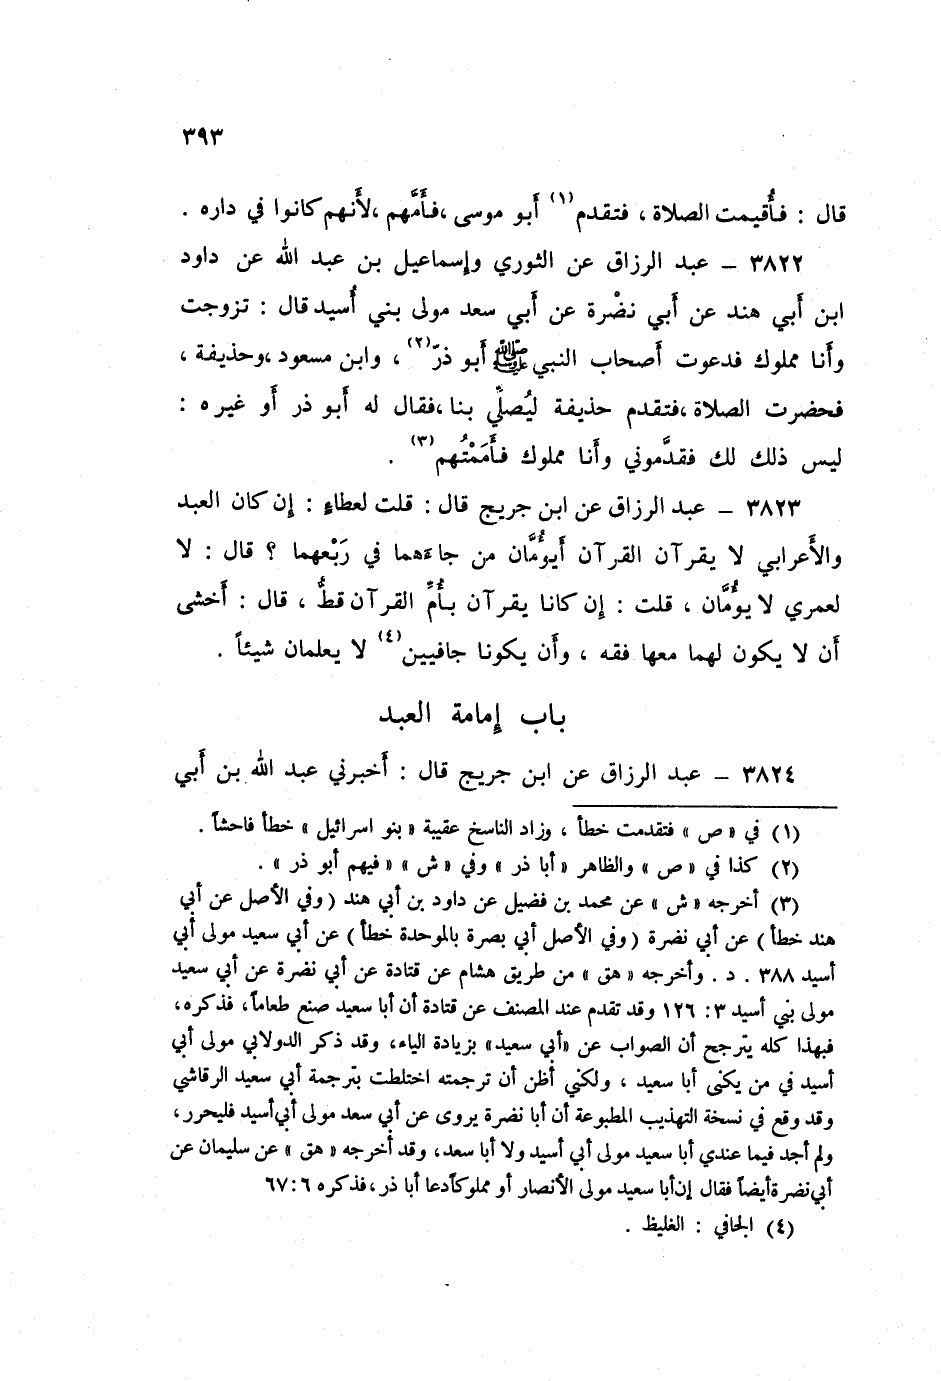 ٣٩٣
قال : فأُقيمت الصلاة ، فتقدم(١) أَبو موسى ،فأَمَّهم ،لأَنهم كانوا في داره .
٣٨٢٢ – عبد الرزاق عن الثوري وإسماعيل بن عبد الله عن داود
ابن أَبي هند عن أَبي نضْرة عن أَبي سعد مولى بني أُسيد قال : تزوجت
وأَنا مملوك فدعوت أَصحاب النبي ﷺ أَبو ذرّ(٢) ، وابن مسعود ،وحذيفة ،
فحضرت الصلاة ،فتقدم حذيفة ليُصلِّي بنا ،فقال له أَبو ذر أَو غيره :
ليس ذلك لك فقدَّموني وأَنا مملوك فأَمَمْتُهم(٣) .
٣٨٢٣ – عبد الرزاق عن ابن جريج قال : قلت لعطاءٍ : إِن كان العبد
والأَعرابي لا يقرآن القرآن أَيؤُمَّان من جاءَهما في رَبْعهما ؟ قال : لا
لعمري لا يؤُمَّان ، قلت : إِن كانا يقرآن بأُمِّ القرآن قطُّ ، قال : أَخشى
أَن لا يكون لهما معها فقه ، وأَن يكونا جافيين(٤) لا يعلمان شيئاً .
باب إِمامة العبد
٣٨٢٤ – عبد الرزاق عن ابن جريج قال : أَخبرني عبد الله بن أَبي
(١) في « ص » فتقدمت خطأ ، وزاد الناسخ عقيبة « بنو اسرائيل » خطأ فاحشاً .
(٢) كذا في « ص » والظاهر « أبا ذر » وفي « ش » « فيهم أبو ذر » .
(٣) أخرجه « ش » عن محمد بن فضيل عن داود بن أبي هند ( وفي الأصل عن أبي
هند خطأ ) عن أبي نضرة ( وفي الأصل أبي بصرة بالموحدة خطأ ) عن أبي سعيد مولى أبي
أسيد ٣٨٨ . د . وأخرجه « هق » من طريق هشام عن قتادة عن أبي نضرة عن أبي سعيد
مولى بني أسيد ٣ : ١٢٦ وقد تقدم عند المصنف عن قتادة أن أبا سعيد صنع طعاماً، فذكره،
فبهذا كله يترجح أن الصواب عن «أبي سعيد» بزيادة الياء، وقد ذكر الدولابي مولى أبي
أسيد في من يكنى أبا سعيد ، ولكني أظن أن ترجمته اختلطت بترجمة أبي سعيد الرقاشي
وقد وقع في نسخة التهذيب المطبوعة أن أبا نضرة يروى عن أبي سعد مولى أبي أسيد فليحرر،
ولم أجد فيما عندي أبا سعيد مولى أبي أسيد ولا أبا سعد، وقد أخرجه « هق » عن سليمان عن
أبي نضرة أيضاً فقال إن أبا سعيد مولى الأنصار أو مملوكاً دعا أبا ذر ،فذكره ٦ : ٦٧
(٤) الجافي : الغليظ .